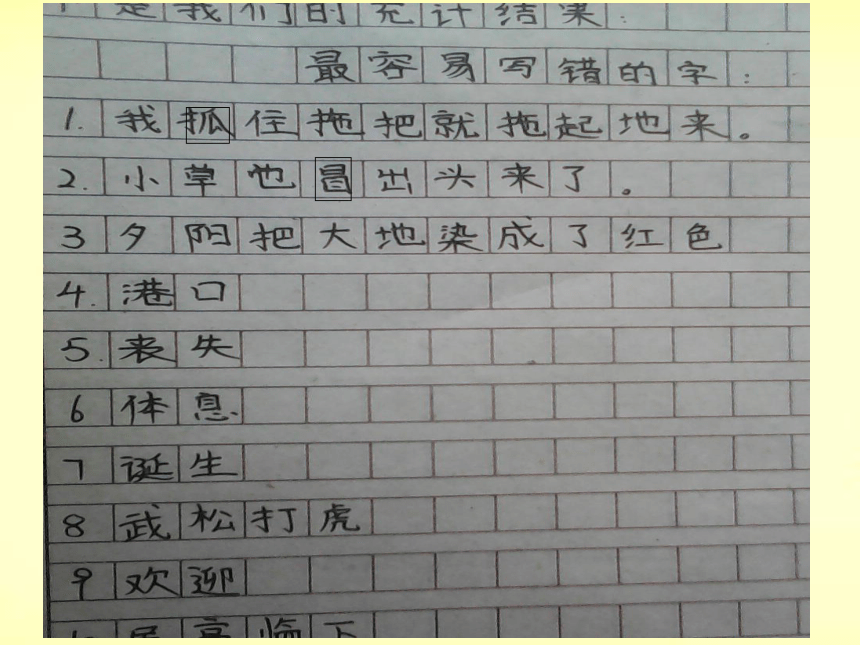 是我们的充计结果：
最容易写错的字：
1. 我抓住拖把就拖起地来。
2. 小草也冒出头来了。
3 夕阳把大地染成了红色
4. 港口
5. 丧失
6 体息
7 诞生
8 武松打虎
9 欢迎
居高临下